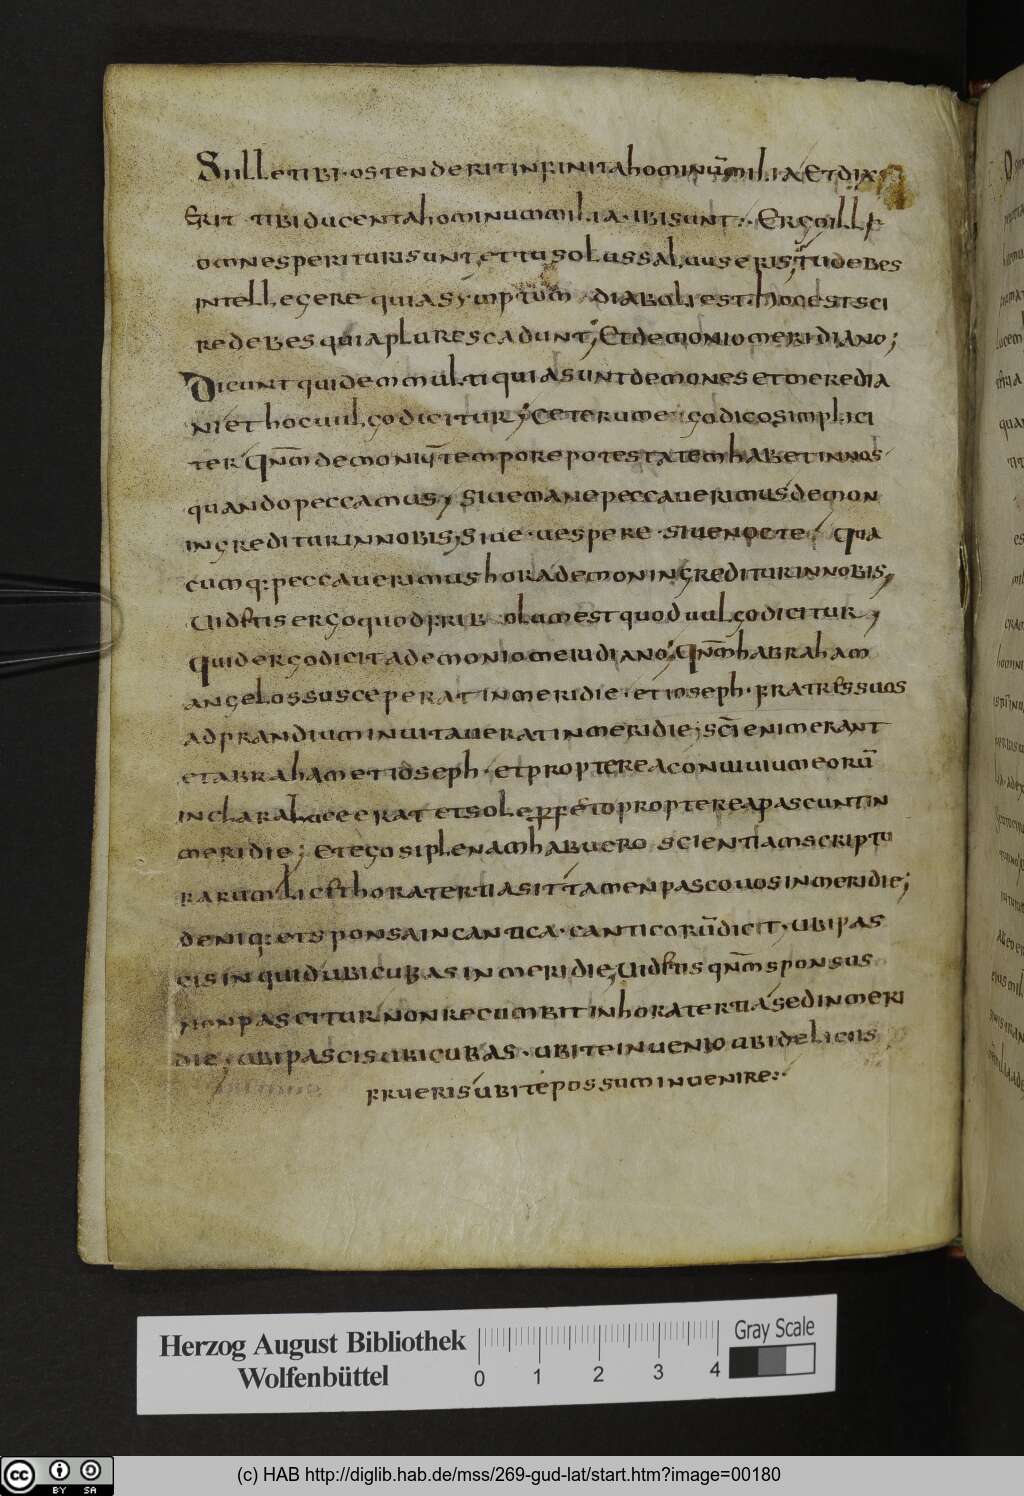 Si ille tibi · ostenderit infinita hominū milia Et dix
erit tibi ducenta hominum milia · ubi sunt :· Ergo ille
omnes perituri sunt, et tu solus saluus eris; Tu debes
intellegere quia symptum diaboli est. Hoc est sci
re debes quia plures cadunt; Et demonio meridiano;
Dicunt quidem multi quia sunt demones et meredia
ni et hoc uulgo dicitur; Ceterum ego dico simplici
ter Qnm̄ demoniū tempore potestatem habet in nos
quando peccamus, Siue mane peccauerimus demon
ingreditur in nobis, Siue · uespere · siue nocte; Qua
cumq: peccauerimus hora demon ingreditur in nobis,
Uidetis ergo quod olum est quod uulgo dicitur,
Quid ergo dicit a demonio meridiano; Qnm̄ habraham
angelos susceperat in meridie · et ioseph · fratres suos
ad prandium inuitauerat in meridie; scī enim erant
et abraham et ioseph · et propterea conuiuium eorū
in clara luce erat et sole perfecto propterea pascunt in
meridie; et ego si plenam habuero scientiam scriptu
rarum licet hora tertia sit tamen pasco uos in meridie;
deniq: et sponsa in cantica · canticorū dicit · ubi pas
cis inquid ubi cubas in meridie; Uidetis qnm̄ sponsus
non pascitur non recumbit in hora tertia sed in meri
die; ubi pascis ubi cubas · ubi te inuenio ubi deliciis
frueris ubi te possum inuenire:·
Herzog August Bibliothek
Wolfenbüttel
0 1 2 3 4
Gray Scale
cc BY SA
(c) HAB http://diglib.hab.de/mss/269-gud-lat/start.htm?image=00180